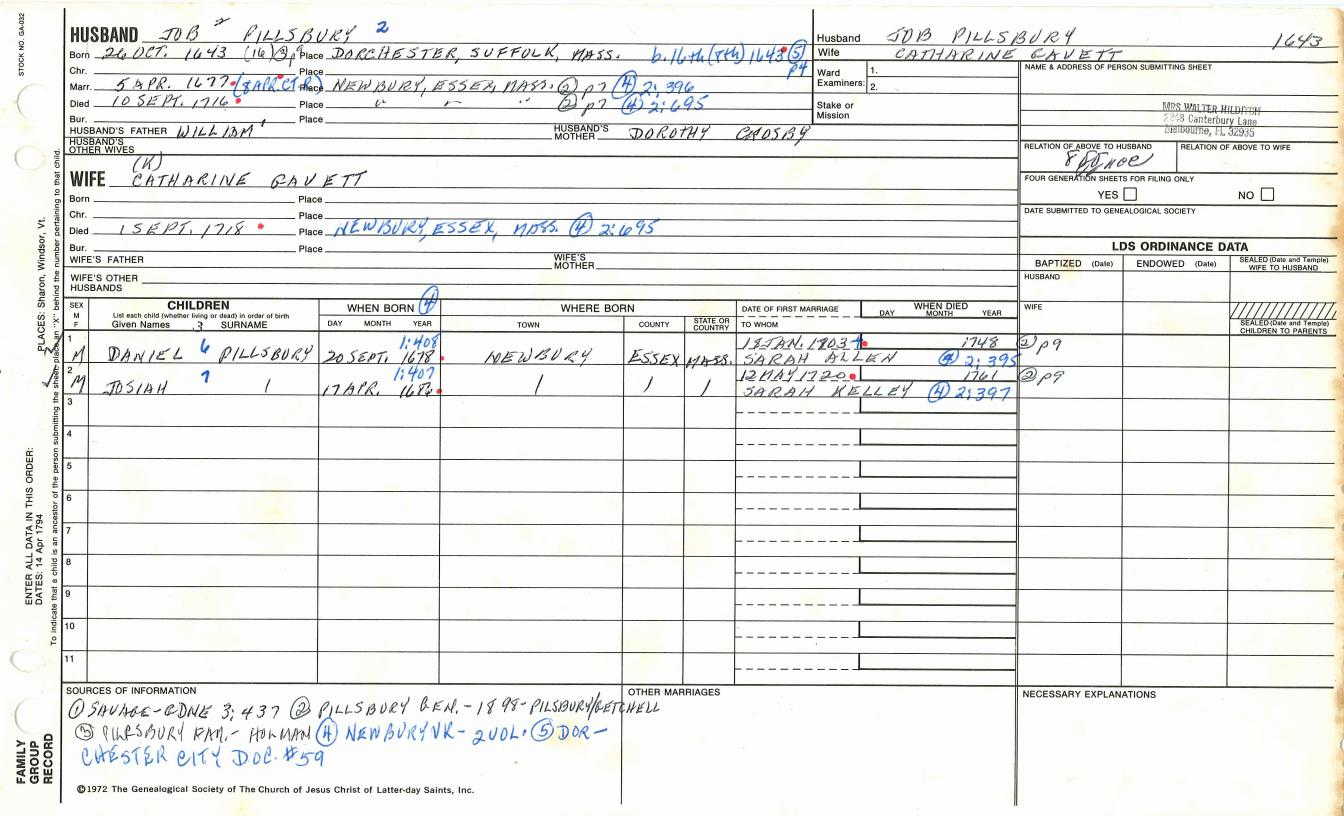 STOCK NO. GA-032
HUSBAND JOB 2 PILLSBURY 2
Born 26 OCT. 1643 (16) ③ p9 Place DORCHESTER, SUFFOLK, MASS. b. 16th (7th) 1643 ⑤ p4
Chr. Place
Marr. 5 APR. 1677 (8 APR. CT. R) Place NEWBURY, ESSEX, MASS. ② p7 ④ 2:396
Died 10 SEPT. 1716 Place " " " ② p7 ④ 2:695
Bur. Place
HUSBAND'S FATHER WILLIAM 1 HUSBAND'S MOTHER DOROTHY CROSBY
HUSBAND'S OTHER WIVES
(K)
WIFE CATHARINE GAVETT
Born Place
Chr. Place
Died 1 SEPT. 1718 Place NEWBURY, ESSEX, MASS. ④ 2:695
Bur. Place
WIFE'S FATHER WIFE'S MOTHER
WIFE'S OTHER HUSBANDS
Husband JOB PILLSBURY 1643
Wife CATHARINE GAVETT
Ward Examiners: 1.
2.
Stake or Mission
NAME & ADDRESS OF PERSON SUBMITTING SHEET
MRS WALTER HILDITCH
Canterbury Lane
Melbourne, FL 32935
RELATION OF ABOVE TO HUSBAND RELATION OF ABOVE TO WIFE
FOUR GENERATION SHEETS FOR FILING ONLY
YES NO
DATE SUBMITTED TO GENEALOGICAL SOCIETY
LDS ORDINANCE DATA
BAPTIZED (Date) ENDOWED (Date) SEALED (Date and Temple) WIFE TO HUSBAND
HUSBAND
WIFE
SEALED (Date and Temple) CHILDREN TO PARENTS
SEX M F
CHILDREN
List each child (whether living or dead) in order of birth
Given Names 3 SURNAME
WHEN BORN ④
DAY MONTH YEAR
WHERE BORN
TOWN COUNTY STATE OR COUNTRY
DATE OF FIRST MARRIAGE
TO WHOM
WHEN DIED
DAY MONTH YEAR
1 1:408 18 JAN. 1703 4 1748 ② p9
M DANIEL 6 PILLSBURY 20 SEPT. 1678 NEWBURY ESSEX MASS. SARAH ALLEN ④ 2:395
2 1:407 12 MAY 1720 1761 ② p9
M JOSIAH 7 17 APR. 1686 SARAH KELLEY ④ 2:397
3
4
5
6
7
8
9
10
11
SOURCES OF INFORMATION
① SAVAGE-GDNE 3:437 ② PILLSBURY GEN. - 1898 - PILSBURY/GETCHELL
③ PILLSBURY FAM. - HOLMAN ④ NEWBURY VR - 2 VOL. ⑤ DOR-
CHESTER CITY DOC. #59
OTHER MARRIAGES
NECESSARY EXPLANATIONS
©1972 The Genealogical Society of The Church of Jesus Christ of Latter-day Saints, Inc.
FAMILY GROUP RECORD
ENTER ALL DATA IN THIS ORDER:
DATES: 14 Apr 1794 PLACES: Sharon, Windsor, Vt.
To indicate that a child is an ancestor of the person submitting the sheet, place an "X" behind the number pertaining to that child.